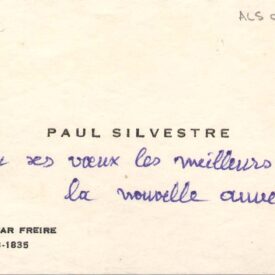 ALS
PAUL SILVESTRE
ses vœux les meilleurs
la nouvelle année
AR FREIRE
-1835